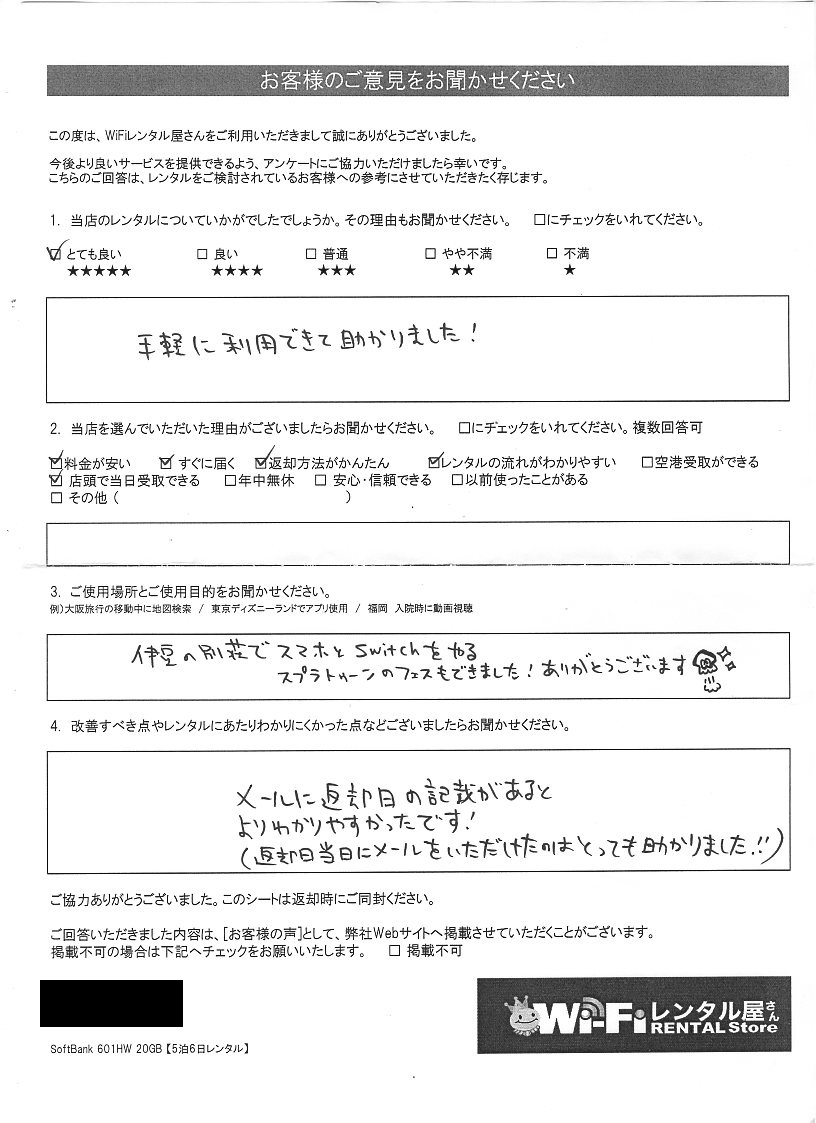 お客様のご意見をお聞かせください
この度は、WiFiレンタル屋さんをご利用いただきまして誠にありがとうございました。
今後より良いサービスを提供できるよう、アンケートにご協力いただけましたら幸いです。
こちらのご回答は、レンタルをご検討されているお客様への参考にさせていただきたく存じます。
1. 当店のレンタルについていかがでしたでしょうか。その理由もお聞かせください。 □にチェックをいれてください。
☑ とても良い □ 良い □ 普通 □ やや不満 □ 不満
★★★★★ ★★★★ ★★★ ★★ ★
手軽に利用できて助かりました!
2. 当店を選んでいただいた理由がございましたらお聞かせください。 □にチェックをいれてください。複数回答可
☑料金が安い ☑ すぐに届く ☑返却方法がかんたん ☑レンタルの流れがわかりやすい □空港受取ができる
☑ 店頭で当日受取できる □年中無休 □ 安心・信頼できる □以前使ったことがある
□ その他 ( )
3. ご使用場所とご使用目的をお聞かせください。
例)大阪旅行の移動中に地図検索 / 東京ディズニーランドでアプリ使用 / 福岡 入院時に動画視聴
伊豆の別荘でスマホとSwitchをやる
スプラトゥーンのフェスもできました!ありがとうございます
4. 改善すべき点やレンタルにあたりわかりにくかった点などございましたらお聞かせください。
メールに返却日の記載があると
よりわかりやすかったです!
(返却日当日にメールをいただけたのはとっても助かりました!!)
ご協力ありがとうございました。このシートは返却時にご同封ください。
ご回答いただきました内容は、[お客様の声]として、弊社Webサイトへ掲載させていただくことがございます。
掲載不可の場合は下記へチェックをお願いいたします。 □ 掲載不可
Wi-Fiレンタル屋さん
RENTAL Store
SoftBank 601HW 20GB【5泊6日レンタル】